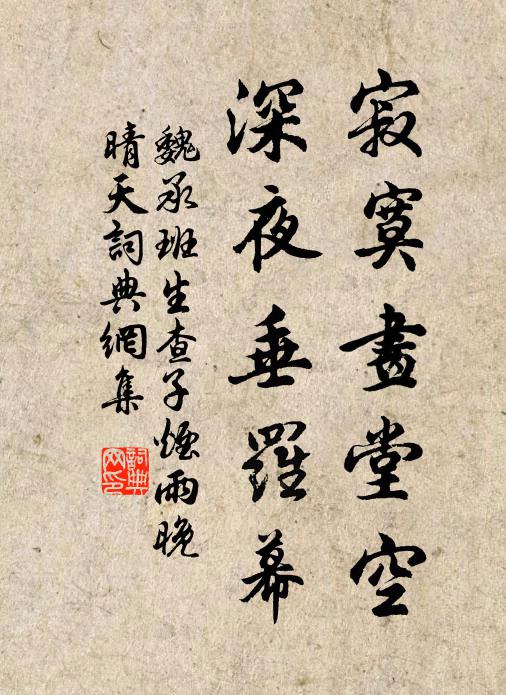 寂寞畫堂空
深夜垂羅幕
魏承班生查子煙雨晚
晴天詞典網集
詞典
网印